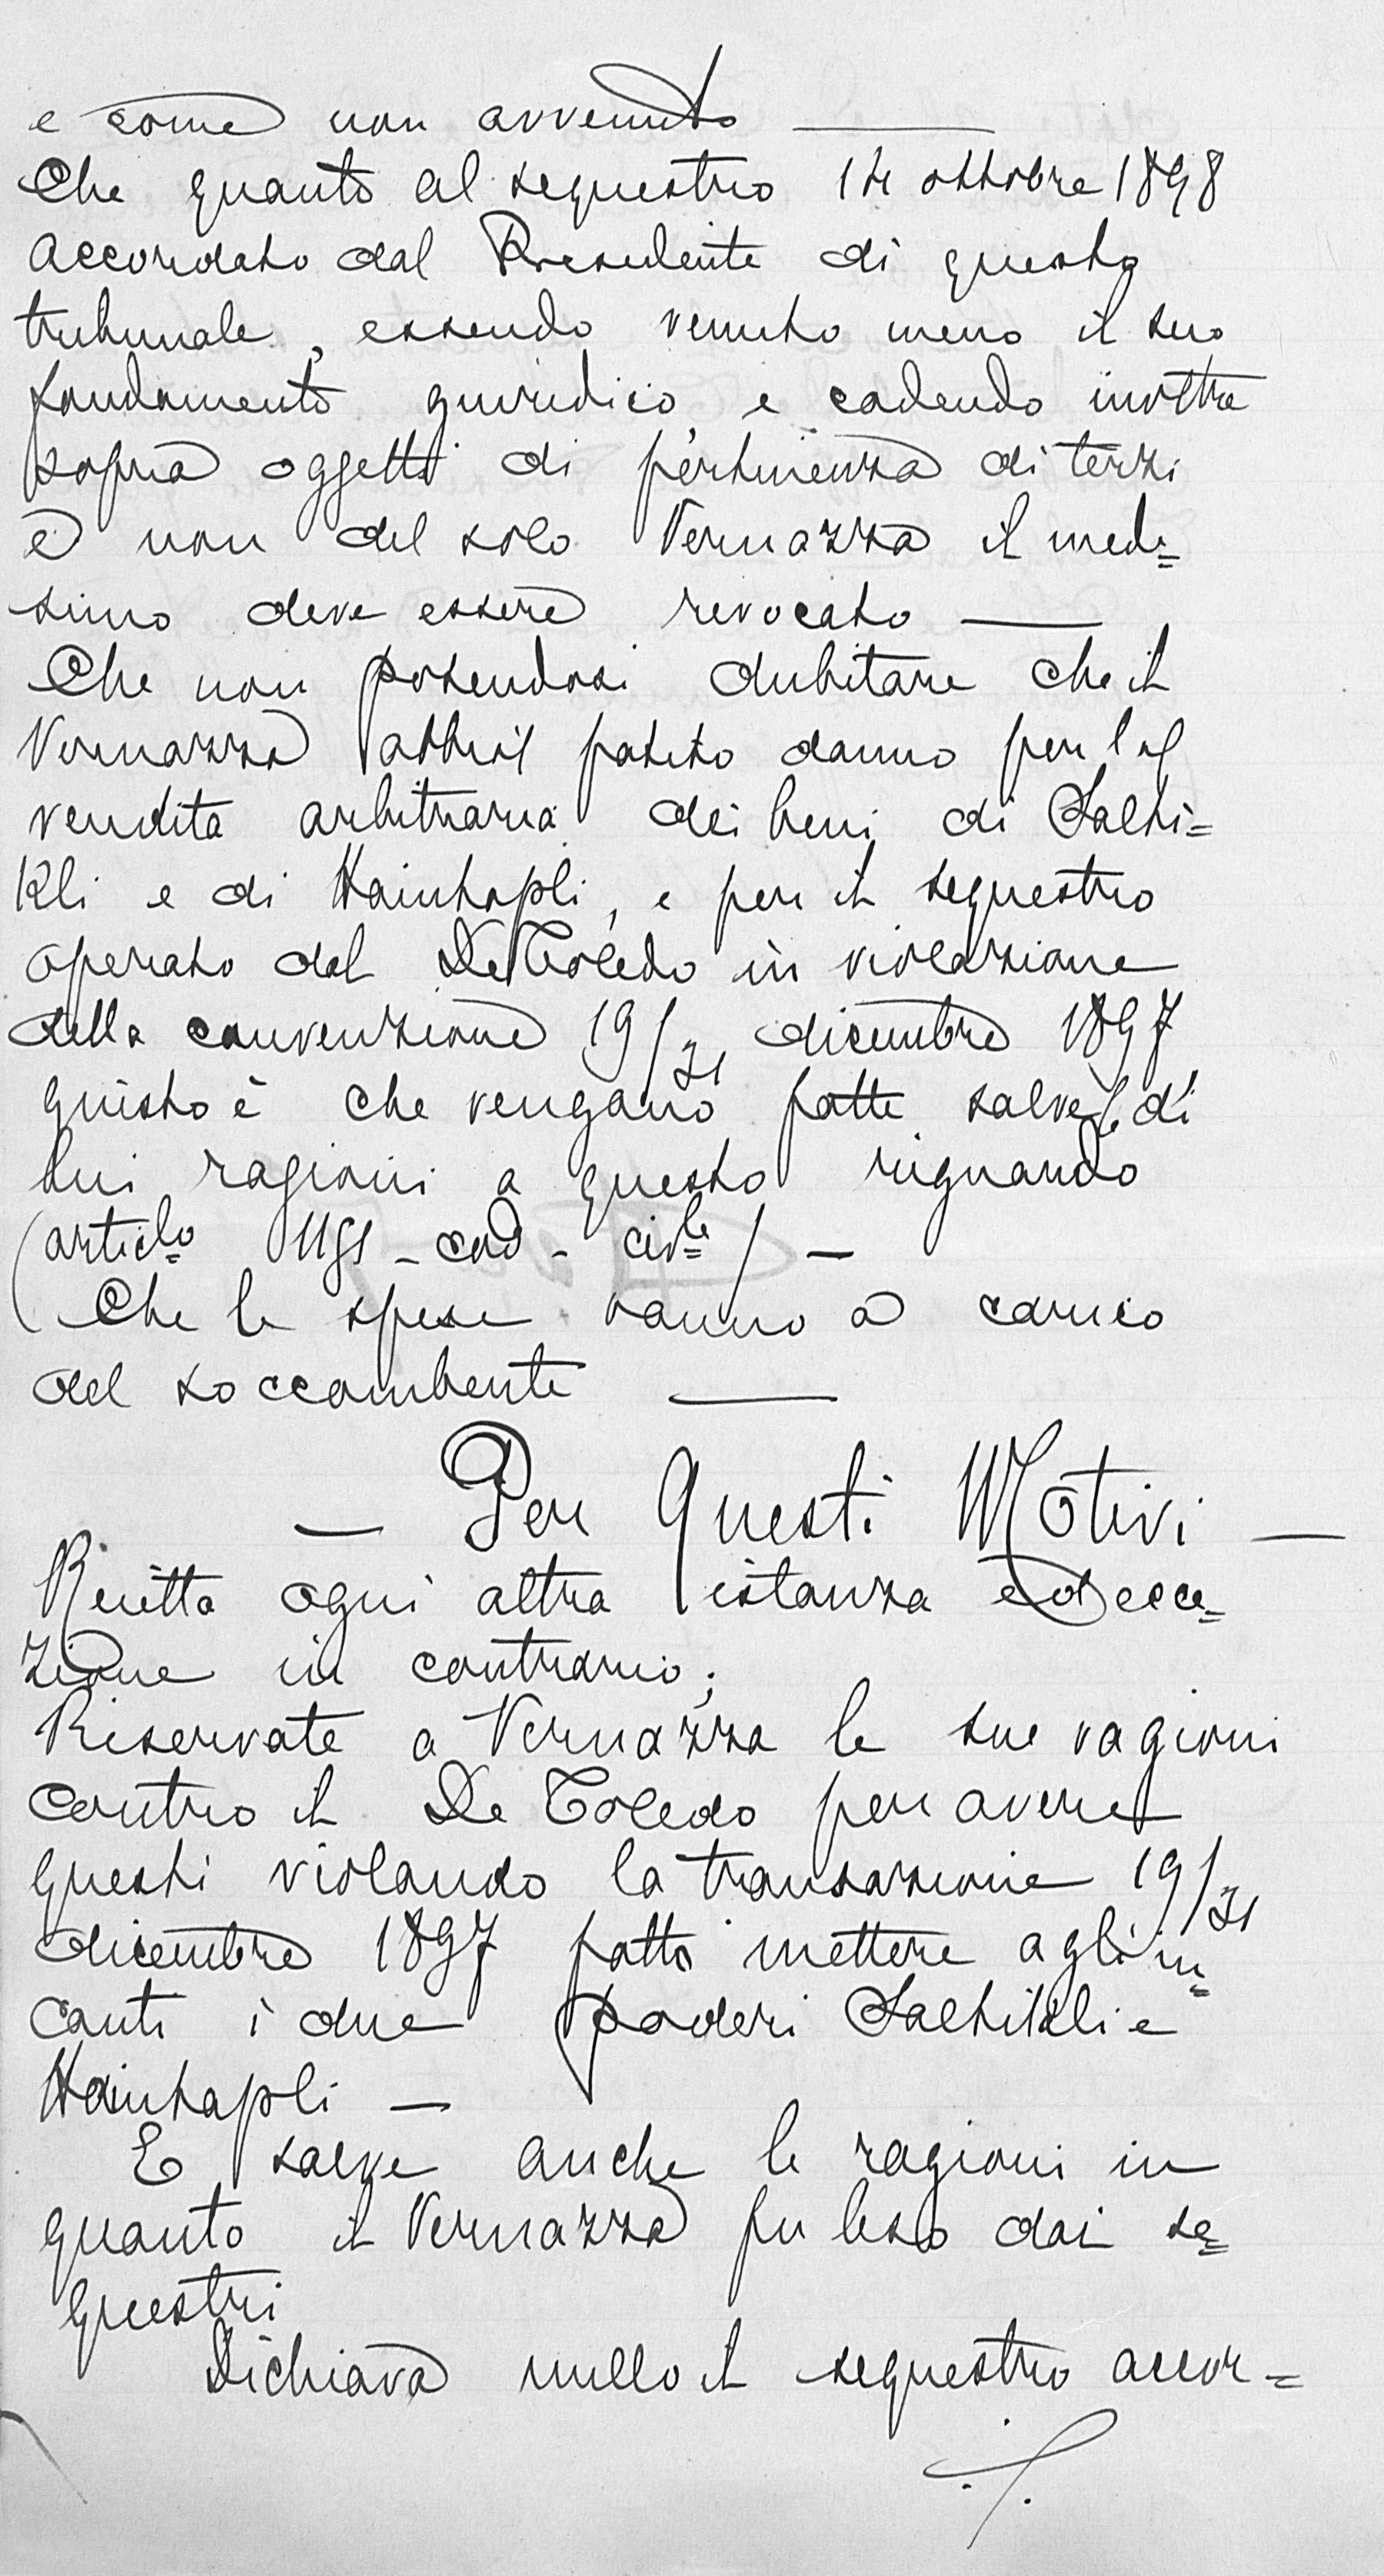 e come non avvenuto —
Che quanto al sequestro 14 ottobre 1898
accordato dal Presidente di questo
tribunale, essendo venuto meno il suo
fondamento giuridico, e cadendo inoltre
sopra oggetti di pertinenza di terzi
e non del solo Vernazza il mede=
simo deve essere revocato —
Che non potendosi dubitare che il
Vernazza abbia patito danno per la
vendita arbitraria dei beni di Salhi=
Kli e di Hainhapli, e per il sequestro
operato dal De Toledo in violazione
della convenzione 19/31 dicembre 1897
giusto è che vengano fatte salve le di
lui ragioni a questo riguardo
(articlo 1151 - cod - civle) —
Che le spese vanno a carico
del soccombente —
— Per Questi Motivi —
Reietta ogni altra istanza ed ecce=
zione in contrario;
Riservate a Vernazza le sue ragioni
contro il De Toledo per avere
questi violando la transazione 19/31
dicembre 1897 fatto mettere agli in=
canti i due poderi Salhikli e
Hainhapli —
E salve anche le ragioni in
quanto il Vernazza fu leso dai se=
questri
Dichiara nullo il sequestro accor=